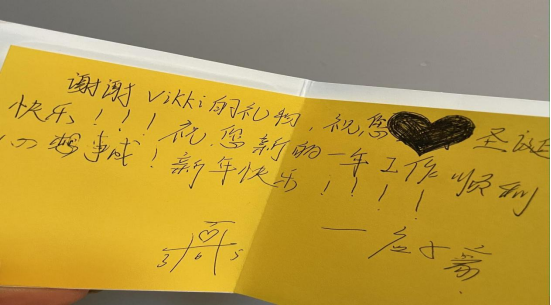 谢谢Vikki的礼物,祝您圣诞
快乐!!!祝您新的一年工作顺利
心想事成!新年快乐!!!!